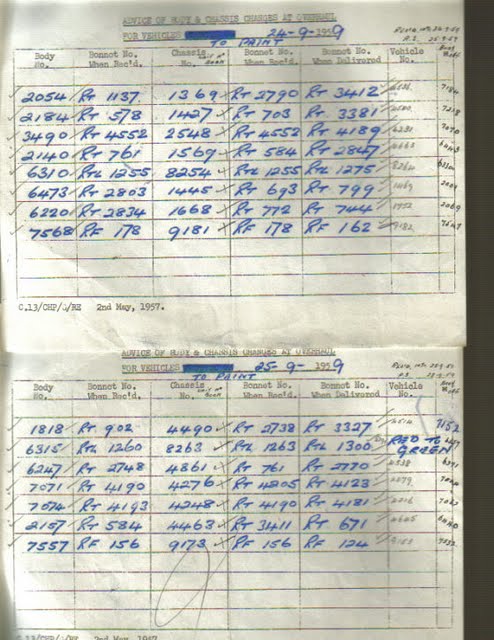 ADVICE OF BODY & CHASSIS CHANGES AT OVERHAUL
FOR VEHICLES TO PAINT 24-9-1959
Body No. Bonnet No. When Rec'd. Chassis No. Bonnet No. Bonnet No. When Delivered Vehicle No.
2054 RT 1137 1369 RT 2790 RT 3412
2184 RT 578 1427 RT 703 RT 3381
3490 RT 4552 2548 RT 4552 RT 4189
2140 RT 761 1569 RT 584 RT 2847
6310 RTL 1255 8254 RTL 1255 RTL 1275 8264
6473 RT 2803 1445 RT 693 RT 799
6220 RT 2834 1668 RT 772 RT 744
7568 RF 178 9181 RF 178 RF 162 9182
C.13/CHP/J/RE 2nd May, 1957.
ADVICE OF BODY & CHASSIS CHANGES AT OVERHAUL
FOR VEHICLES TO PAINT 25-9-1959
Body No. Bonnet No. When Rec'd. Chassis No. Bonnet No. Bonnet No. When Delivered Vehicle No.
1818 RT 902 4490 RT 2738 RT 3327 7152
6315 RTL 1260 8263 RTL 1263 RTL 1300 RED TO GREEN
6247 RT 2748 4861 RT 761 RT 2770
7071 RT 4190 4276 RT 4205 RT 4123
7074 RT 4193 4248 RT 4190 RT 4181
2157 RT 584 4463 RT 3411 RT 671
7557 RF 156 9173 RF 156 RF 124
C.13/CHP/J/RE 2nd May, 1957